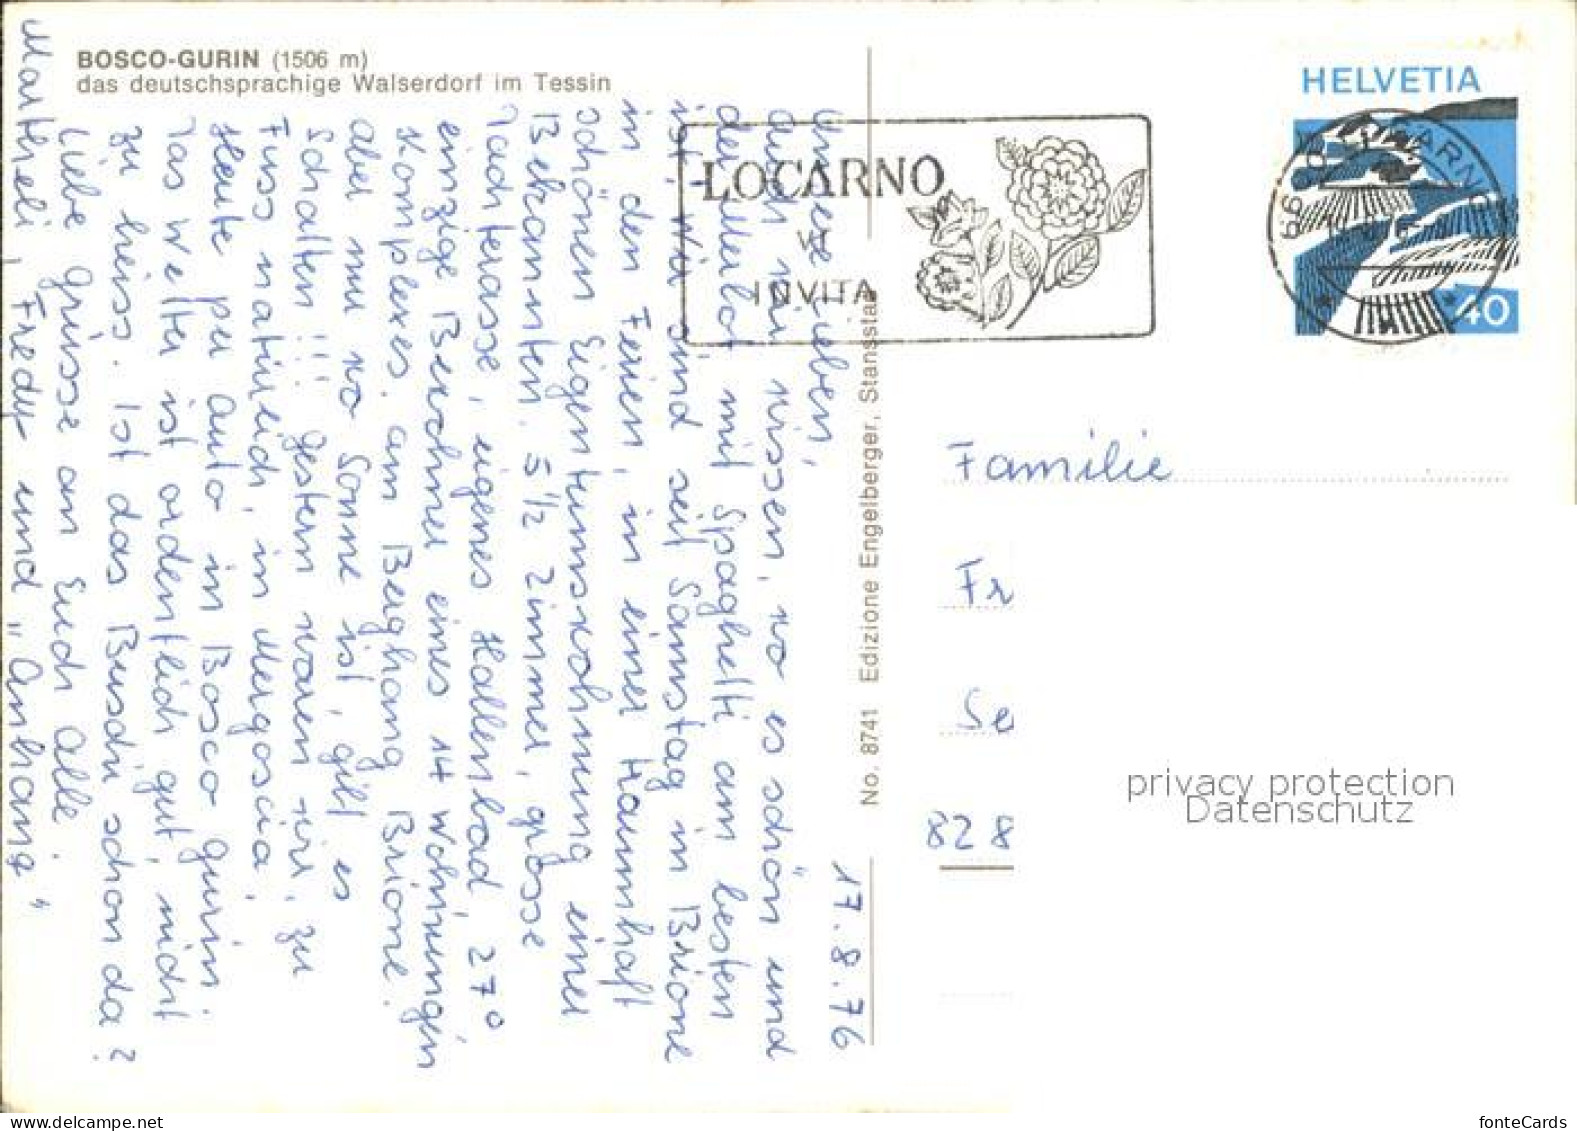 BOSCO-GURIN (1506 m)
das deutschsprachige Walserdorf im Tessin
17.8.76
Unsere Lieben,
auch wir wissen, wo es schön und
der Merlot mit Spaghetti am besten
ist, - wir sind seit Samstag in Brione
in den Ferien, in einer traumhaft
schönen Eigentumswohnung einer
Bekannten. 5 1/2 Zimmer, grosse
Dachterasse, eigenes Hallenbad, 27°
einzige Bewohner eines 14 Wohnungen
Komplexes. am Berghang Brione.
Aber nur wo Sonne ist, gibt es
Schatten !!! gestern waren wir, zu
Fuss natürlich, in Mergoscia,
Heute per Auto in Bosco gurin.
Das Wetter ist ordentlich gut, nicht
zu heiss. Ist das Buschi schon da?
Liebe grüsse an Euch alle.
Martheli, Fredy und "Anhang"
No. 8741 Edizione Engelberger, Stansstad
LOCARNO
VI
INVITA
HELVETIA
40
Familie
Fr
Se
828
privacy protection
Datenschutz
fonteCards